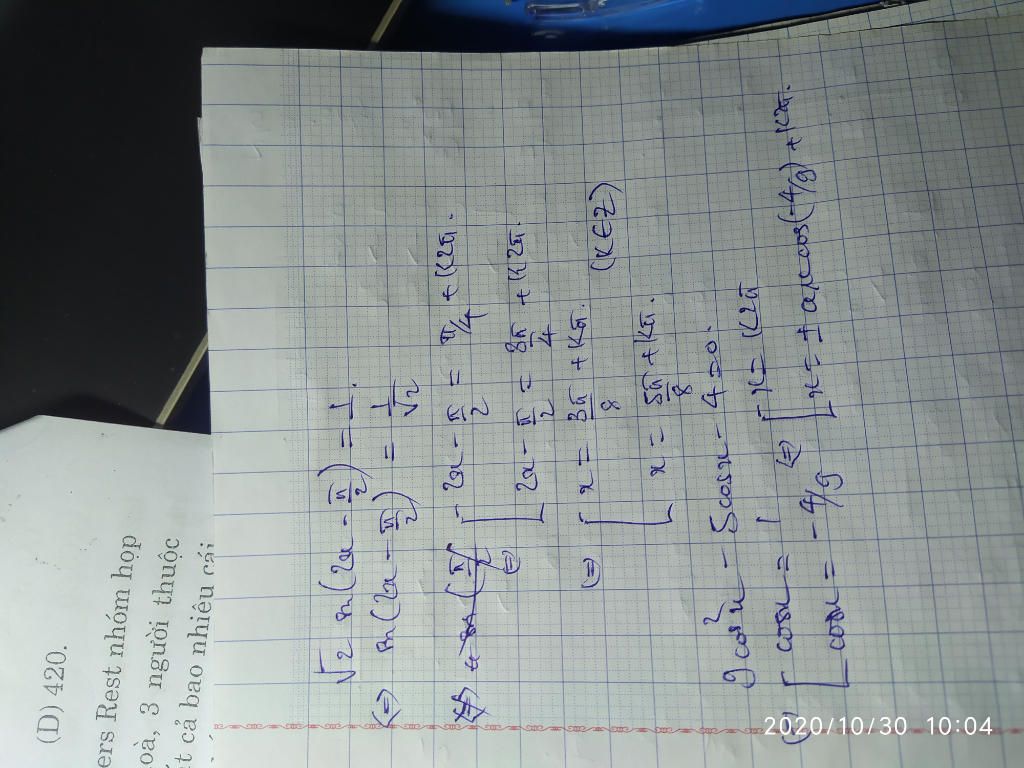 (D) 420.
ers Rest nhóm họp
oà, 3 người thuộc
t cả bao nhiêu cái
√2 sin(2x - π/2) = 1.
<=> sin(2x - π/2) = 1/√2
<=> [ 2x - π/2 = π/4 + K2π.
2x - π/2 = 3π/4 + K2π.
<=> [ x = 3π/8 + Kπ. (K∈Z)
x = 5π/8 + Kπ.
9cos²x - 5cosx - 4 = 0.
<=> [ cosx = 1 <=> [ x = K2π
cosx = -4/9 x = ± arccos(-4/9) + K2π.
2020/10/30 10:04